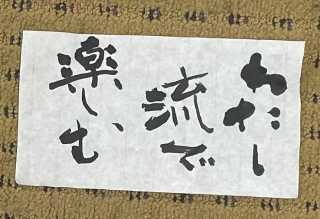 わたし
流で
楽しむ